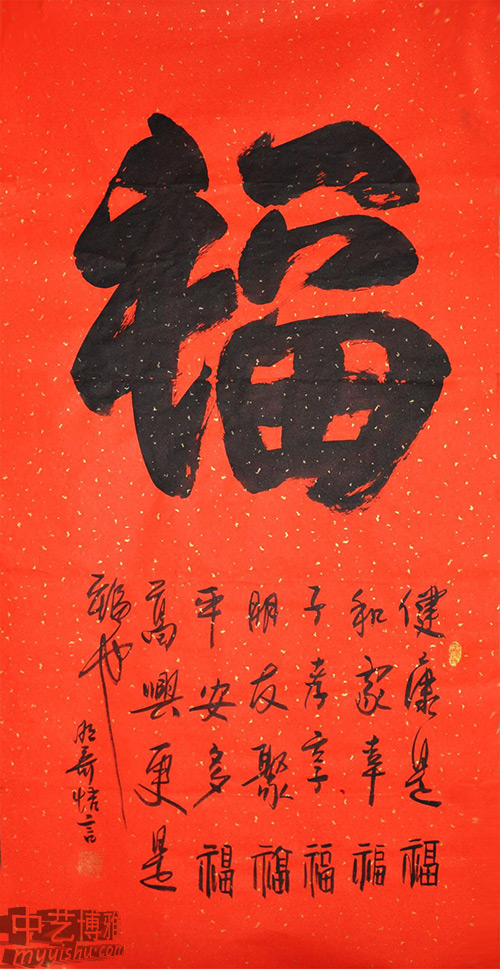 福
健康是福
和家幸福
子孝享福
朋友聚福
平安多福
高興更是
福也
寿悟言
中艺博雅
myyishu.com